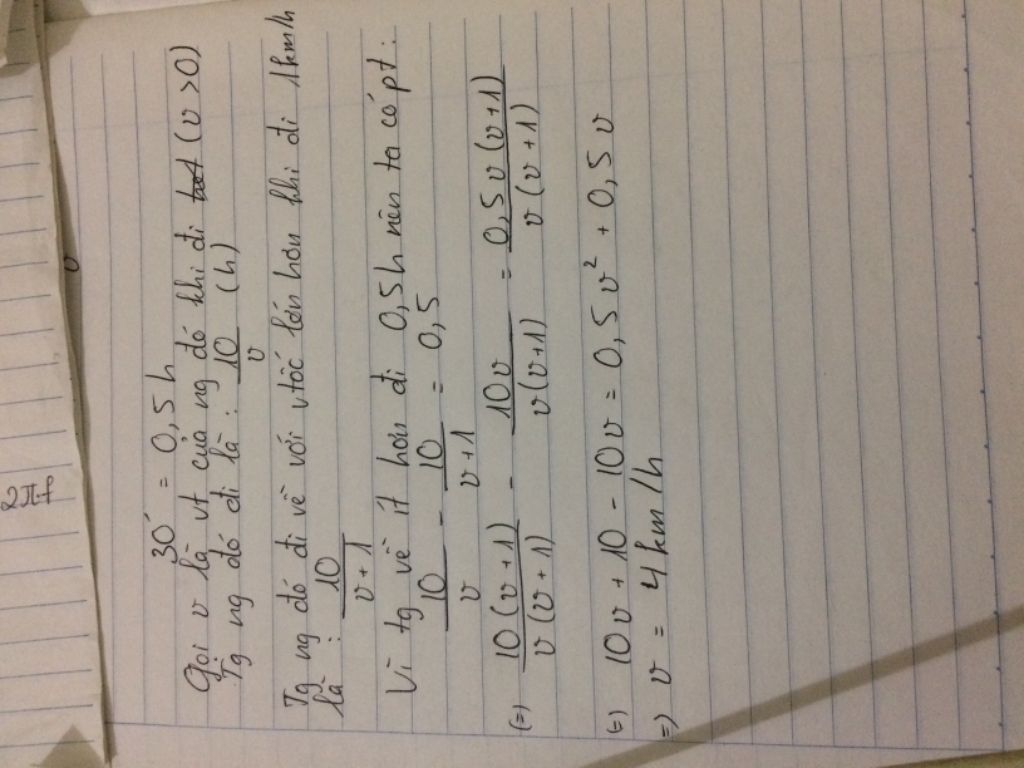 2π.f
30' = 0,5 h
Gọi v là vt của ng đó khi đi (v > 0)
Tg ng đó đi là : 10/v (h)
Tg ng đó đi về với vtốc lớn hơn khi đi 1km/h
là : 10/(v+1)
Vì tg về ít hơn đi 0,5h nên ta có pt :
10/v - 10/(v+1) = 0,5
(=) 10(v+1)/v(v+1) - 10v/v(v+1) = 0,5v(v+1)/v(v+1)
(=) 10v + 10 - 10v = 0,5v² + 0,5v
=) v = 4km/h